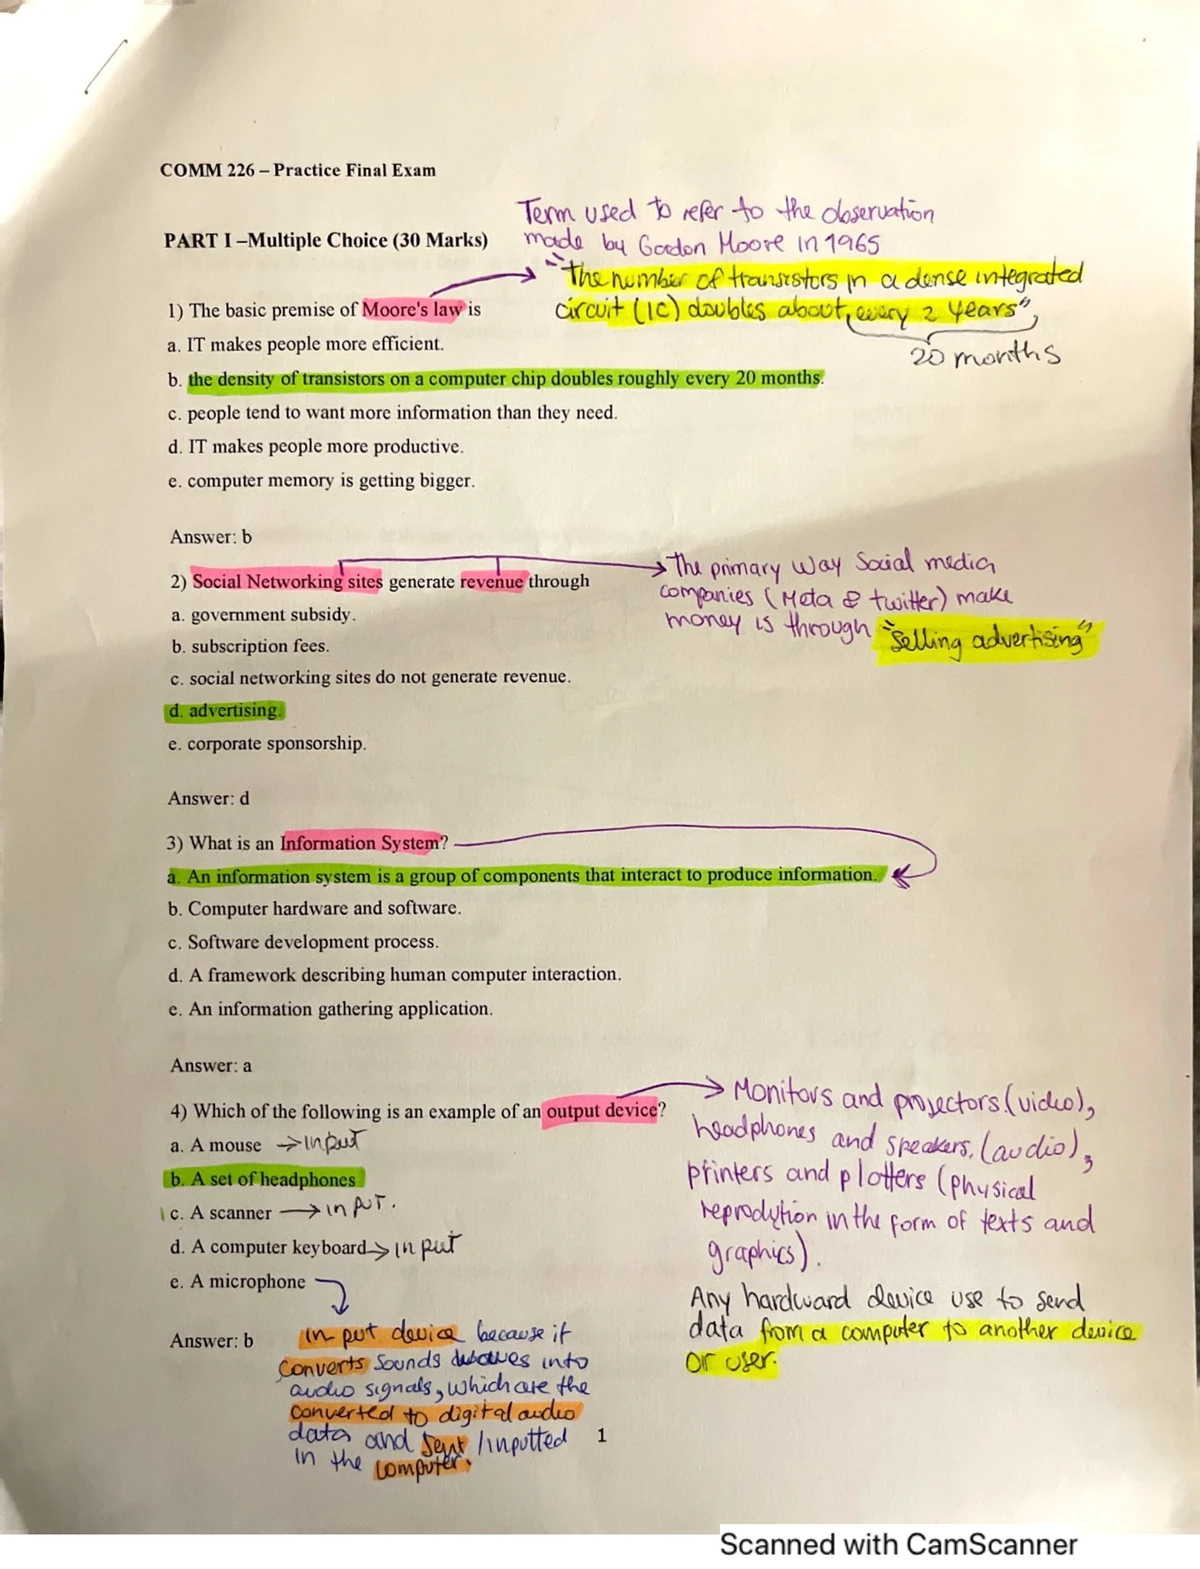 COMM 226 – Practice Final Exam
Term used to refer to the observation
made by Gordon Moore in 1965
PART I –Multiple Choice (30 Marks)
"the number of transistors in a dense integrated
circuit (IC) doubles about, every 2 years",
20 months
1) The basic premise of Moore's law is
a. IT makes people more efficient.
b. the density of transistors on a computer chip doubles roughly every 20 months.
c. people tend to want more information than they need.
d. IT makes people more productive.
e. computer memory is getting bigger.
Answer: b
The primary way Social media
companies (Meta & twitter) make
money is through "selling advertising"
2) Social Networking sites generate revenue through
a. government subsidy.
b. subscription fees.
c. social networking sites do not generate revenue.
d. advertising.
e. corporate sponsorship.
Answer: d
3) What is an Information System?
a. An information system is a group of components that interact to produce information.
b. Computer hardware and software.
c. Software development process.
d. A framework describing human computer interaction.
e. An information gathering application.
Answer: a
4) Which of the following is an example of an output device?
Monitors and projectors (video),
headphones and speakers, (audio),
printers and plotters (physical
reprodytion in the form of texts and
graphics).
Any hardward device use to send
data from a computer to another device
or user.
a. A mouse → input
b. A set of headphones
c. A scanner → input.
d. A computer keyboard → input
e. A microphone
Answer: b
input device because it
converts sounds into
audio signals, which are the
converted to digital audio
data and sent / inputted
in the computer.
1
Scanned with CamScanner